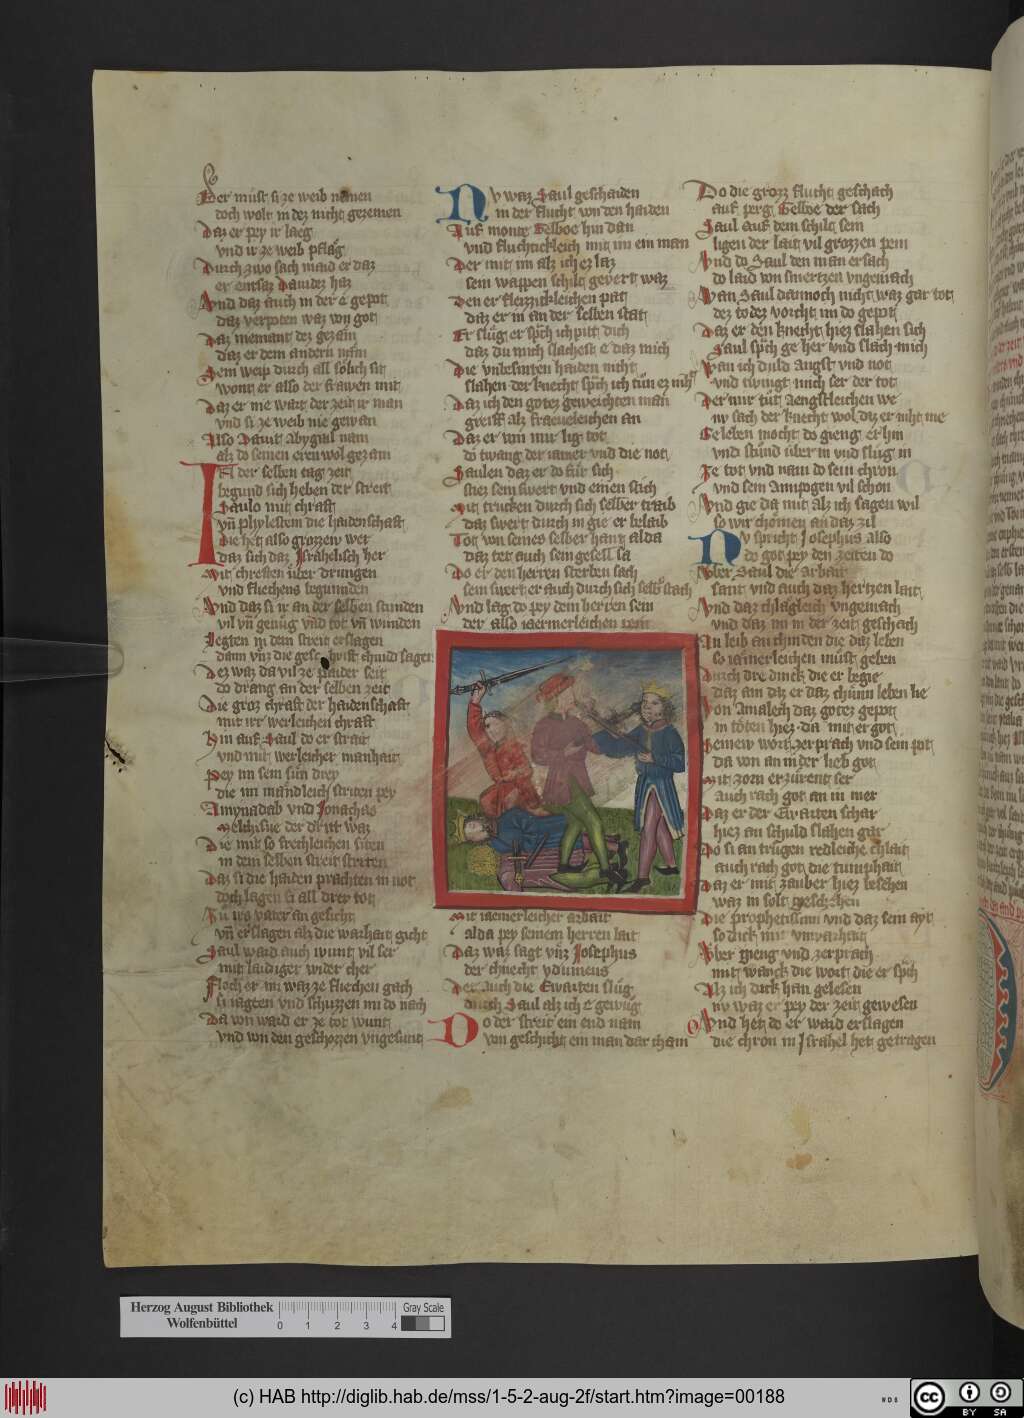 Der müst si ze weib nemen
doch wolt in dez nicht gezemen
Daz er pey ir laeg
vnd ir ze weib pflag
Durch zwo sach maid er daz
er entsaz Dauidez haz
Vnd daz auch in der e gepot
daz verpoten waz von got
Daz niemant dez gezam
daz er dem andern nam
Sein weip durch all sölich sit
wont er also der frawen mit
Daz er nie wart der zeit ir man
vnd si ze weib nie gewan
Also Dauit Abygail nam
alz do seinen eren wol gezam
In der selben tag zeit
begund sich heben der streit
Saulo mit chraft
vn̄ phylesteim die haidenschaft
Die het also grozzew wer
daz sich daz Israhelisch her
Mit chreften über drungen
vnd fliehens begunnden
Vnd daz si ir an der selben stunden
vil vn̄ genüg vnd tot vn̄ wunden
Legten in dem streit erslagen
dann vnz die geschrift chund sagen
Dez waz da vil ze paider seit
do drang an der selben zeit
Die groz chraft der haidenschaft
mit irr werleichen chraft
Hin auf Saul do er strait
vnd mit werleicher manhait
Pey im sein sün drey
die im mandleich striten pey
Amynadab vnd Jonathas
Melchisue der dritt waz
Die mit so frechleichen siten
in dem selben streit striten
Daz si die haiden prachten in not
doch lagen si all drey tot
In irs vater angesicht
vn̄ erslagen alz die warhait gicht
Saul ward auch wunt vil ser
mit laidiger wider cher
Floch er im waz ze fliechen gach
si iagten vnd schuzzen im do nach
Da von ward er ze tot wunt
vnd von den geschozzen vngesunt
Nv waz Saul geschaiden
in der flucht von den haiden
Auf monte Gelboe hin dan
vnd fluchticleich mit im ein man
Der mit im alz ich ez laz
sein wappen schilt gevert waz
Den er fleizzicleichen pat
daz er in an der selben stat
Er slüg er sp̄ch ich pitt dich
daz du mich slachest e daz mich
Die vnbesniten haiden niht
slahen der knecht sp̄ch ich tün ez niht
Daz ich den gotez geweichten man
greiff alz fraeueleichen an
Daz er von mir lig tot
do twang der iamer vnd die not
Saulen daz er do für sich
stiez sein swert vnd einen stich
Mit trucken durch sich selber traib
daz swert durch in gie er belaib
Tot von seines selber hant alda
daz tet auch sein gesell sa
Do er den herren sterben sach
sein swert er auch durch sich selb stach
Vnd lag do pey dem herren sein
der also iaemerleichen pein
Mit iaemerleicher arbait
alda pey seinem herren lait
Daz waz sagt vnz Josephus
der chnecht ydumeus
Der auch die Ewarten slüg
durch Saul alz ich e gewüg
Do der streit ein end nam
von geschicht ein man dar cham
Do die grozz flucht geschach
auf perg Gelboe der sach
Saul auf dem schilt sein
ligen der laut vil grozzen pein
Vnd do Saul den man ersach
do laid von smertzen vngemach
Wan Saul dannoch nicht waz gar tot
dez todez vorcht im do gepot
Daz er den knecht hiez slahen sich
Saul sp̄ch ge her vnd slach mich
Wan ich duld angst vnd not
vnd twingt mich ser der tot
Der mir tüt aengstleichen we
nv sach der knecht wol daz er niht me
Geleben mocht do gieng er hin
vnd stünd über in vnd slüg in
Ze tot vnd nam do sein chron
vnd sein Armpogen vil schon
Vnd gie da mit alz ich sagen wil
so wir chömen an daz zil
Nv spricht Josephus also
do got pey den zeiten do
Vber Saul die arbait
sant vnd auch daz hertzen lait
Vnd daz chlagleich vngemach
vnd daz im in der zeit geschach
An leib an chinden die daz leben
so iaemerleichen müst geben
Durch dre dinck die er begie
daz ain diz er daz chünn leben lie
Von Amalech daz gotez gepot
in töten hiez da mit er got
Seinew wort zerprach vnd sein pot
da von an in der lieb got
Mit zorn erzürent ser
auch rach got an in mer
Daz er der Ewarten schar
hiez an schuld slahen gar
Do si an trügen redleiche chlait
auch rach got die tumphait
Daz er mit zauber hiez beschen
waz in solt geschehen
Die prophetissinn vnd daz sein ayt
so dick mit vnwarhait
Vber gieng vnd zerprach
mit wanck die wort die er sp̄ch
Alz ich dick han gelesen
nv waz er pey der zeit gewesen
Vnd het do er ward erslagen
die chron in Israhel het getragen
Herzog August Bibliothek
Wolfenbüttel
0 1 2 3 4
Gray Scale
(c) HAB http://diglib.hab.de/mss/1-5-2-aug-2f/start.htm?image=00188
WDB
cc BY SA